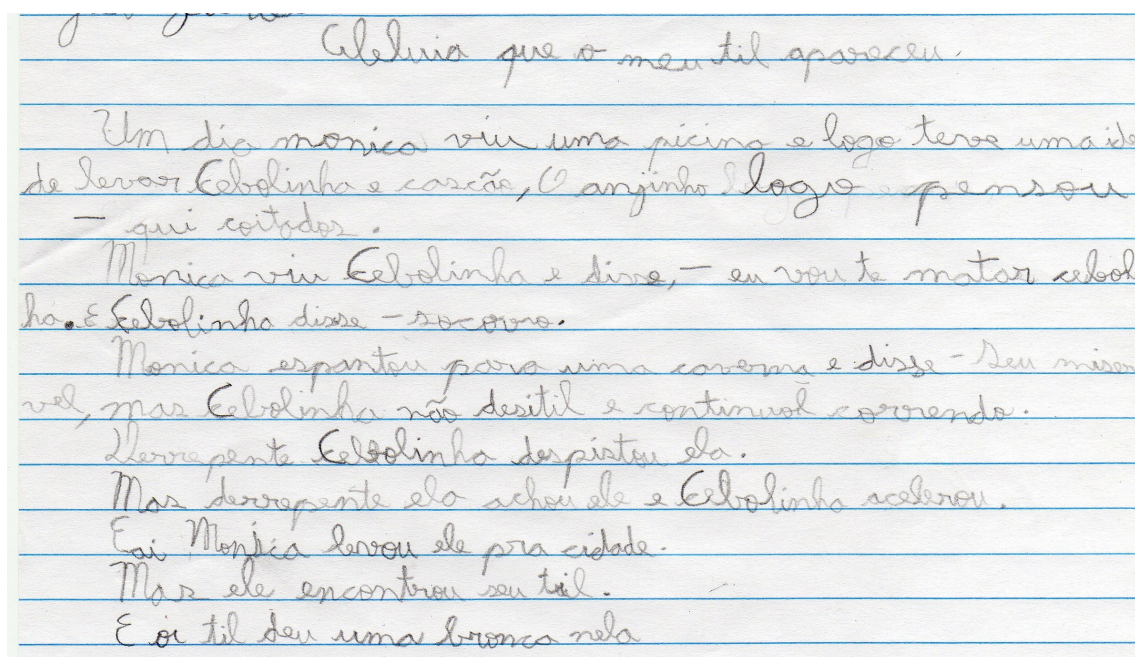 Aleluia que o meu til apareceu.
Um dia monica viu uma picina e logo teve uma ide
de levar Cebolinha e cascão, O anjinho logo pensou
– qui coitados.
Monica viu Cebolinha e disse, – eu vou te matar cebol
ha. E Cebolinha disse – socorro.
Monica espantou para uma caverna e disse – Seu miser
vel, mas Cebolinha não desitil e continuol correndo.
Derrepente Cebolinha despistou ela.
Mas derrepente ela achou ele e Cebolinha acelerou.
E ai Monica levou ele pra cidade.
Mas ele encontrou seu til.
E oi til deu uma bronca nela